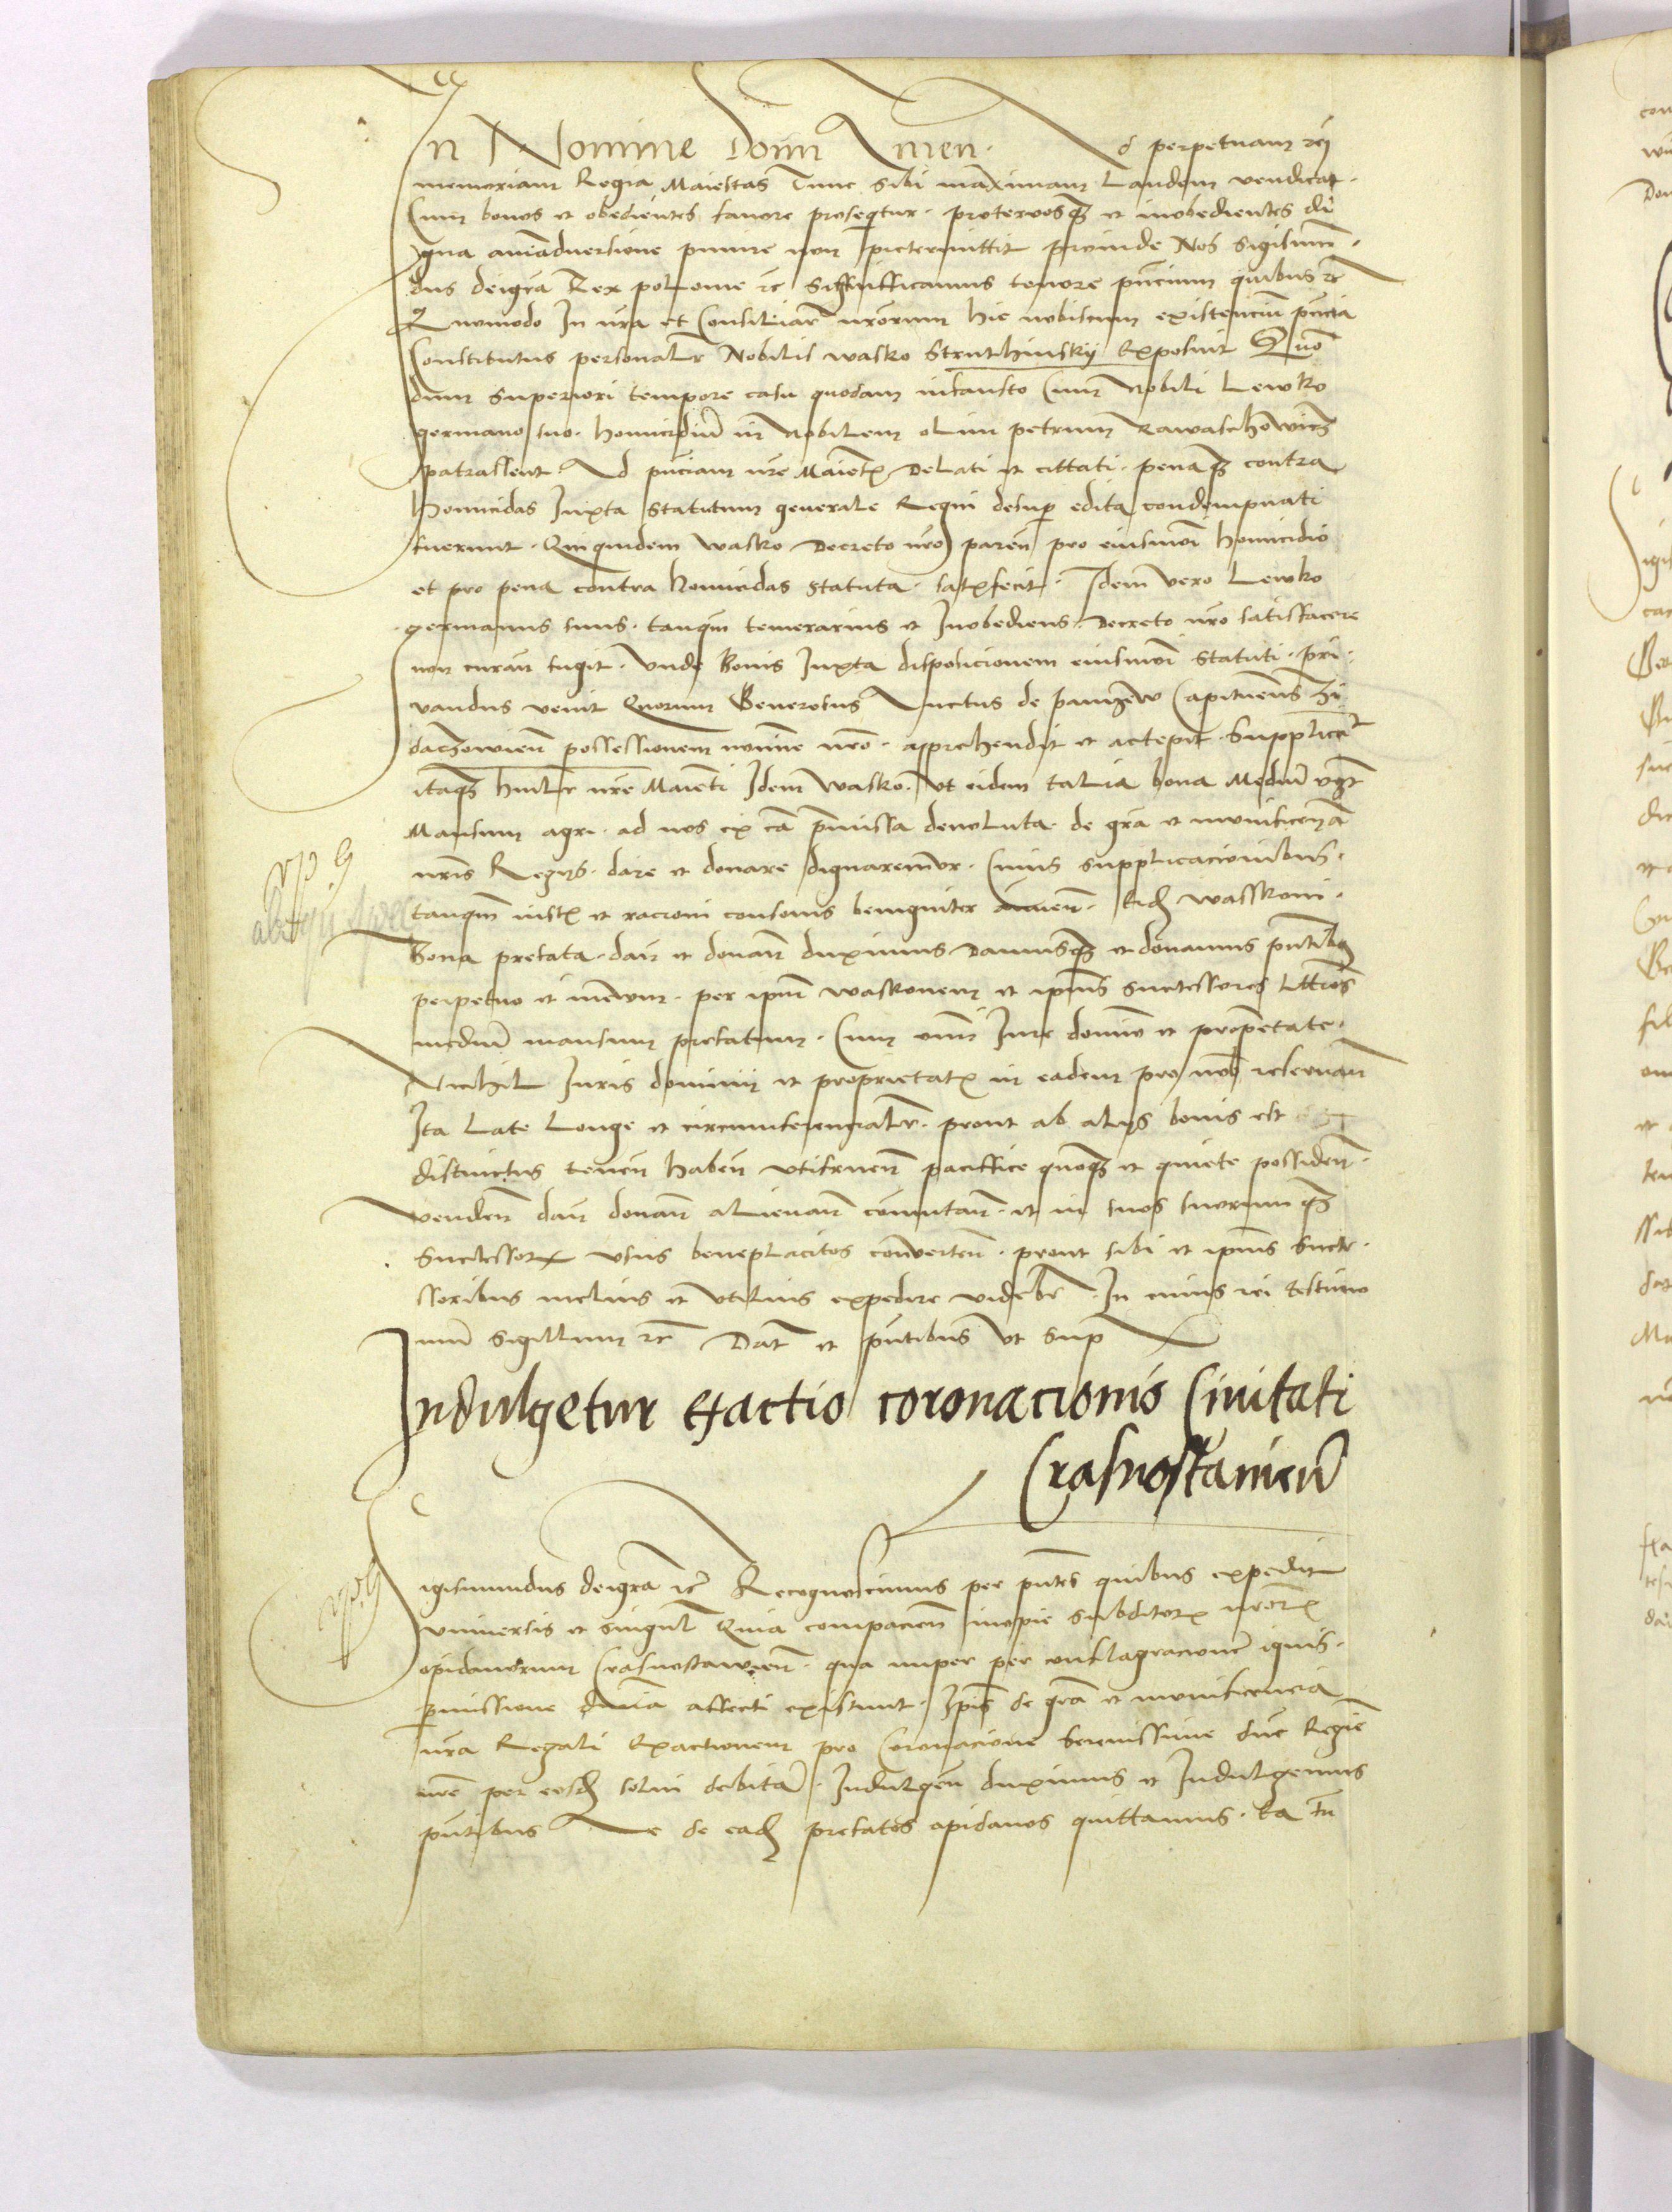 In Nomine Dom̄i Amen. Ad perpetuam rey
memoriam Regia Maiestas Tunc sibi maximam Laudem vendicat.
Cum bonos et obedientes favore proseqtur. protervosq3 et inobedientes di
gna anīadversione punire non pretermittit proinde Nos Sigismū.
dus dei gr̄a Rex polonie ꝛc̄ Significamus tenore pn̄cium quibus ꝛc̄
Quomodo In nr̄a et Consiliar̄ nr̄orum hic nobiscum existenciū pn̄cia
Constitutus personalr̄ Nobilis wasko Struthinskij Exposuit Quō
dum superiori tempore casu quodam infausto Cum Nobili Lewko
germano suo. homicidiū in Nobilem olim petrum
patrassent Ad pn̄ciam nr̄e Maiest. Delati et cittati. penaq3 contra
Homicidas Iuxta Statutum generale Regni desup edita condempnati
fuerunt. Quiquidem wasko Decreto nr̄o paren̄ pro eiusmoī homicidio
et pro pena contra homicidas statuta. satisfecit. Idem vero Lewko
germanus suus. tanqm temerarius et Inobediens. Decreto nr̄o satisfacere
non curan̄ fugit. Unde Bonis Iuxta disposicionem eiusmoī Statuti. pri
vandus venit Quorum Generosus Auctus de panyew Capituens Zi
daczowien̄ possessionem nomine nr̄o. apprehendit et accepit. Supplicat
itaq3 humilr̄ nr̄e Maiestati Idem Wasko. Ut eidem talia bona Mediū vz̄t
Mansum agri. ad nos ex cā p̄missa devoluta. de gr̄a et munificenciā
nr̄is Regijs. dare et donare dignaremur. Cuius supplicacionibus.
tanqm iustis et racioni consonis benigniter annuen̄. Eid3 wasskoni.
Bona prefata. dan̄ et donan̄ duximus. Damusq3 et donamus pn̄tib3
perpetuo et in evum. per ipm̄ waskonem et ipius successores Lttimos
mediū mansum prefatum. Cum omī Iure dominio et proprietate.
Nichil Iuris dominij et proprietatis in eadem pro nob̄ reservan̄
Ita Late Longe et circumferencialr̄. prout ab alijs bonis est
distinctus tenen̄ haben̄ utifruen̄ paciffice quoq3 et quiete possiden̄.
venden̄ dan̄ donan̄ alienan̄ comutan̄. et in suos suorumq3
Successor. usus beneplacitos converten̄. prout sibi et ipius succe.
ssoribus melius et utilius expedire videbr̄. In cuius rei testimo
nium sigillum ꝛc̄ Dat̄ et pn̄tibus ut Sup
Indulgetur exactio coronacionis Civitati
Crasnostaviēn̄
Sigismundus dei gr̄a ꝛc̄ Recognoscimus per pn̄tes quibus expedit
universis et singul̄ Quia compacien̄ inopie Subditor. nr̄or.
opidanorum Crasnostawien̄. qua nuper per conflagracionē ignis.
p̄missione divina affecti existunt. Ipis de gr̄a et munificencia
nr̄a Regali Exactionem pro Coronacione Serenissime dn̄e Regine
nr̄e per eosd3 solvi debitā. Indulgen̄ duximus et Indulgemus
pn̄tibus Ac de ead3 prefatos opidanos quittamus. Ea tn̄